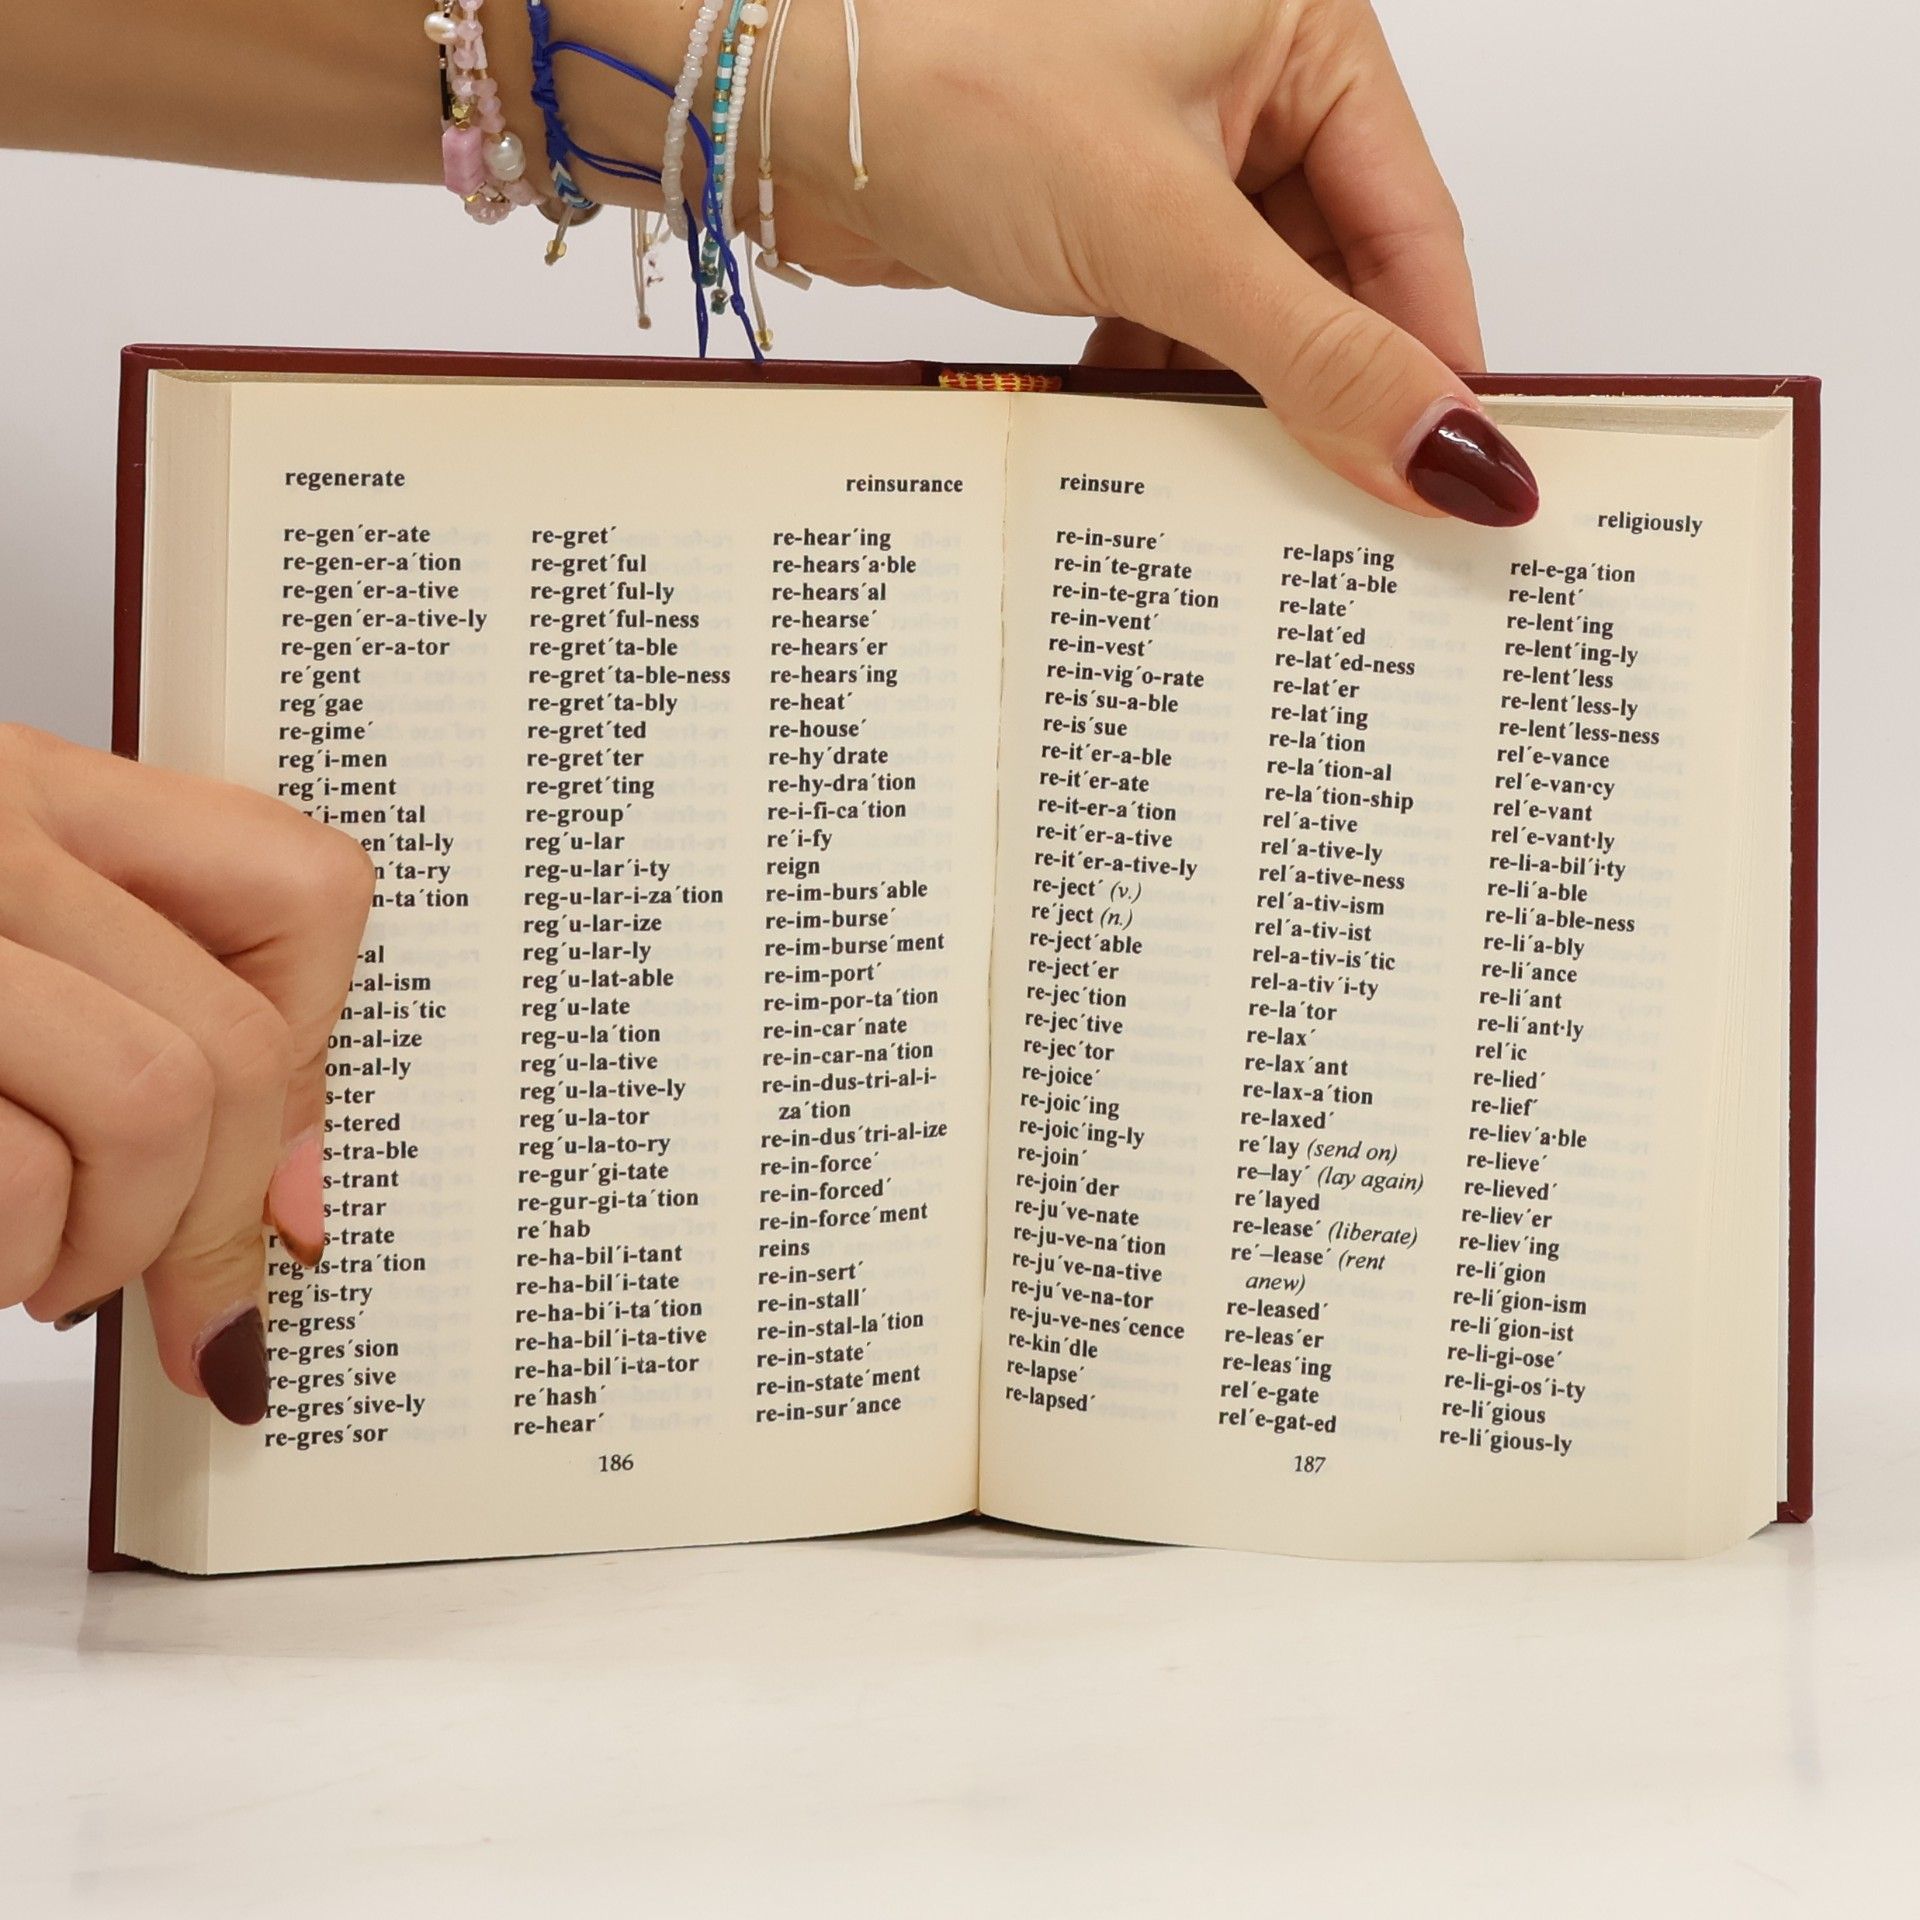 regenerate
reinsurance
re-gen´er-ate
re-gen-er-a´tion
re-gen´er-a-tive
re-gen´er-a-tive-ly
re-gen´er-a-tor
re´gent
reg´gae
re-gime´
reg´i-men
reg´i-ment
´i-men´tal
en´tal-ly
n´ta-ry
n-ta´tion
-al
-al-ism
n-al-is´tic
on-al-ize
on-al-ly
s-ter
s-tered
s-tra-ble
s-trant
s-trar
s-trate
reg-is-tra´tion
reg´is-try
re-gress´
re-gres´sion
re-gres´sive
re-gres´sive-ly
re-gres´sor
re-gret´
re-gret´ful
re-gret´ful-ly
re-gret´ful-ness
re-gret´ta-ble
re-gret´ta-ble-ness
re-gret´ta-bly
re-gret´ted
re-gret´ter
re-gret´ting
re-group´
reg´u-lar
reg-u-lar´i-ty
reg-u-lar-i-za´tion
reg´u-lar-ize
reg´u-lar-ly
reg´u-lat-able
reg´u-late
reg-u-la´tion
reg´u-la-tive
reg´u-la-tive-ly
reg´u-la-tor
reg´u-la-to-ry
re-gur´gi-tate
re-gur-gi-ta´tion
re´hab
re-ha-bil´i-tant
re-ha-bil´i-tate
re-ha-bi´i-ta´tion
re-ha-bil´i-ta-tive
re-ha-bil´i-ta-tor
re´hash´
re-hear´
re-hear´ing
re-hears´a·ble
re-hears´al
re-hearse´
re-hears´er
re-hears´ing
re-heat´
re-house´
re-hy´drate
re-hy-dra´tion
re-i-fi-ca´tion
re´i-fy
reign
re-im-burs´able
re-im-burse´
re-im-burse´ment
re-im-port´
re-im-por-ta´tion
re-in-car´nate
re-in-car-na´tion
re-in-dus-tri-al-i-
za´tion
re-in-dus´tri-al-ize
re-in-force´
re-in-forced´
re-in-force´ment
reins
re-in-sert´
re-in-stall´
re-in-stal-la´tion
re-in-state´
re-in-state´ment
re-in-sur´ance
186
reinsure
religiously
re-in-sure´
re-in´te-grate
re-in-te-gra´tion
re-in-vent´
re-in-vest´
re-in-vig´o-rate
re-is´su-a-ble
re-is´sue
re-it´er-a-ble
re-it´er-ate
re-it-er-a´tion
re-it´er-a-tive
re-it´er-a-tive-ly
re-ject´ (v.)
re´ject (n.)
re-ject´able
re-ject´er
re-jec´tion
re-jec´tive
re-jec´tor
re-joice´
re-joic´ing
re-joic´ing-ly
re-join´
re-join´der
re-ju´ve-nate
re-ju-ve-na´tion
re-ju´ve-na-tive
re-ju´ve-na-tor
re-ju-ve-nes´cence
re-kin´dle
re-lapse´
re-lapsed´
re-laps´ing
re-lat´a-ble
re-late´
re-lat´ed
re-lat´ed-ness
re-lat´er
re-lat´ing
re-la´tion
re-la´tion-al
re-la´tion-ship
rel´a-tive
rel´a-tive-ly
rel´a-tive-ness
rel´a-tiv-ism
rel´a-tiv-ist
rel-a-tiv-is´tic
rel-a-tiv´i-ty
re-la´tor
re-lax´
re-lax´ant
re-lax-a´tion
re-laxed´
re´lay (send on)
re–lay´ (lay again)
re´layed
re-lease´ (liberate)
re´–lease´ (rent
anew)
re-leased´
re-leas´er
re-leas´ing
rel´e-gate
rel´e-gat-ed
rel-e-ga´tion
re-lent´
re-lent´ing
re-lent´ing-ly
re-lent´less
re-lent´less-ly
re-lent´less-ness
rel´e-vance
rel´e-van·cy
rel´e-vant
rel´e-vant·ly
re-li-a-bil´i·ty
re-li´a-ble
re-li´a-ble-ness
re-li´a-bly
re-li´ance
re-li´ant
re-li´ant·ly
rel´ic
re-lied´
re-lief´
re-liev´a·ble
re-lieve´
re-lieved´
re-liev´er
re-liev´ing
re-li´gion
re-li´gion-ism
re-li´gion-ist
re-li-gi-ose´
re-li-gi-os´i-ty
re-li´gious
re-li´gious-ly
187